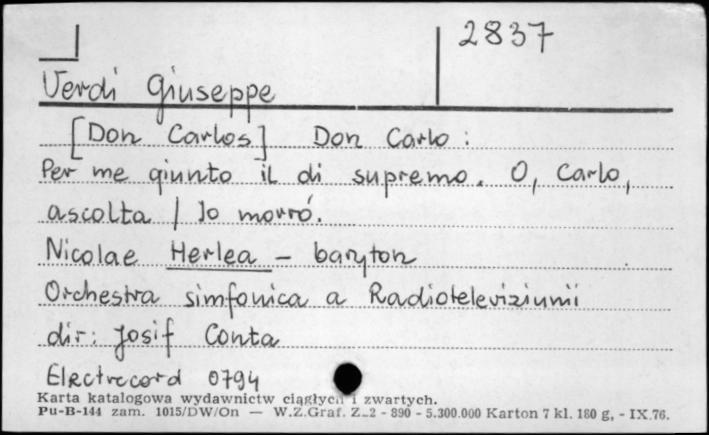 2837
Verdi Giuseppe
[Don Carlos] Don Carlo:
Per me giunto il di supremo. O, Carlo,
ascolta / Io morró.
Nicolae Herlea - baryton
Orchestra simfonica a Radioteleviziunii
dir: Josif Conta
Electrecord 0794
Karta katalogowa wydawnictw ciągłych i zwartych.
Pu-B-144 zam. 1015/DW/On — W.Z.Graf. Z-2 - 890 - 5.300.000 Karton 7 kl. 180 g, - IX.76.